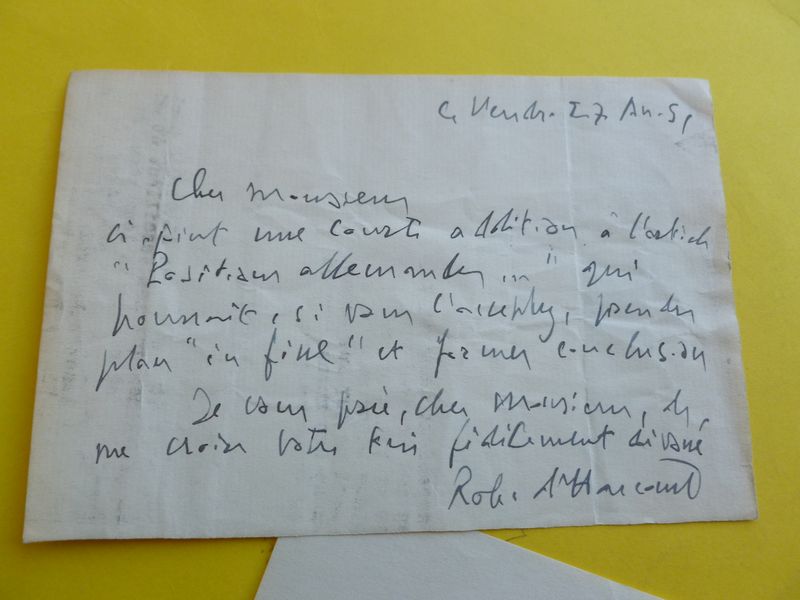 ce Vendr. 27 Av. 51
Cher Monsieur
ci-joint une courte addition à l'article
"Positions allemandes..." qui
pourrait, si vous l'acceptez, prendre
place "in fine" et former conclusion
Je vous prie, cher Monsieur, de
me croire votre bien fidèlement dévoué
Robe. d'Harcourt